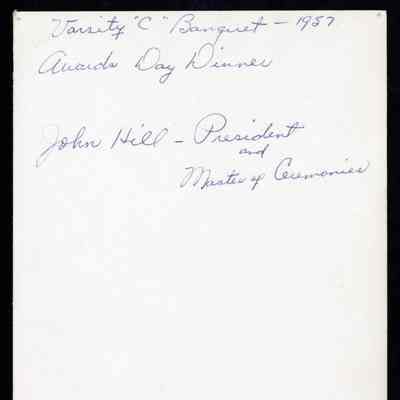 Varsity "C" Banquet - 1957
Awards Day Dinner
John Hill - President
and
Master of Ceremonies